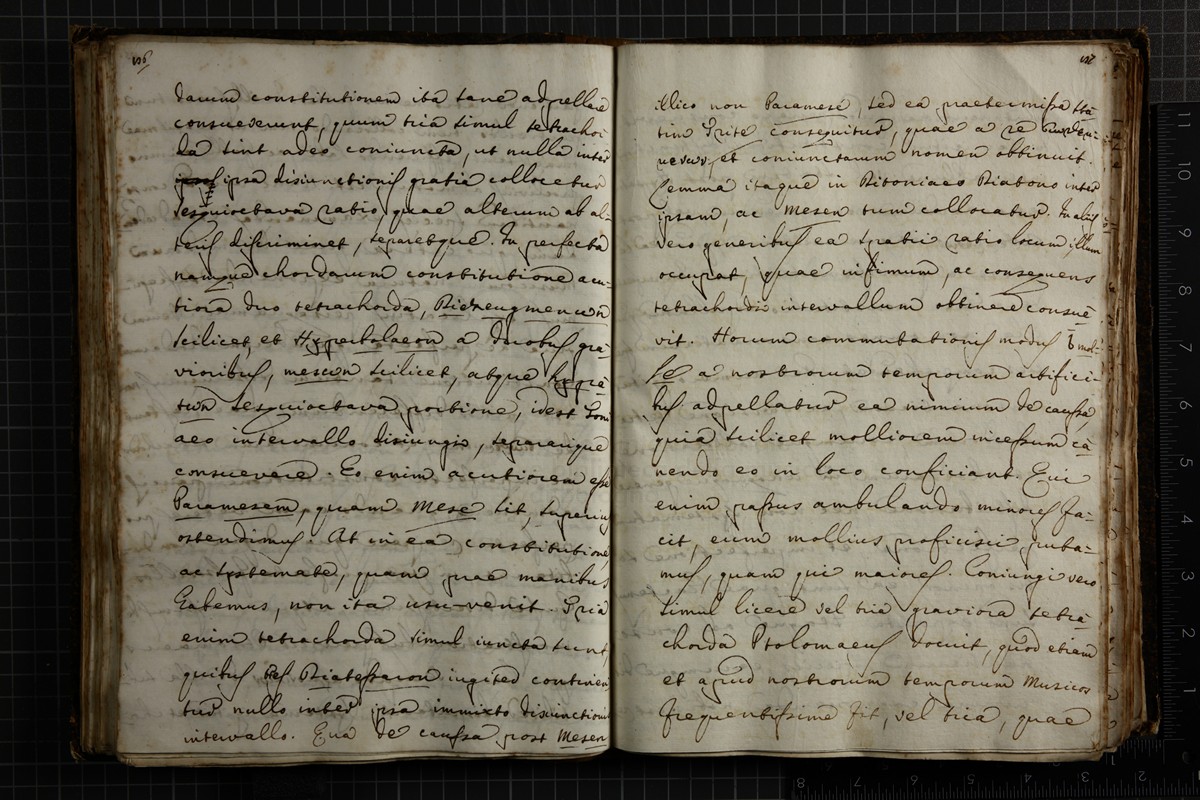 156
darum constitutionem ita sane adpellare
consueverunt, quum tria simul tetrachor
da sint adeo coniuncta, ut nulla inter
ipsa disiunctionis gratia collocetur
sesquioctava ratio, quae alterum ab al-
teris discriminet, separetque. In perfecta
namque chordarum constitutione acu-
tiora duo tetrachorda, Diezeugmenωn
scilicet, et Hyperbolaeon a duobus gra
vioribus, mesωn scilicet, atque hypa
tωn sesquioctava portione, idest Toni
aeo intervallo disiungi, separarique
consuevere. Eo enim acutiorem esse
Paramesem, quam Mese sit, superius
ostendimus. At in ea constitutione,
ac systemate, quam prae manibus
habemus, non ita usu-venit. Tria
enim tetrachorda simul iuncta sunt,
quibus Diatessaron iugiter continen
tur nullo inter ipsa immixto disiunctionis
intervallo. Qua de caussa post Mesen
157
illico non Paramese, sed ea praetermissa sta
tim Trite consequitur, quae a re
et coniunctarum nomen obtinuit.
Lemma itaque in Ditoniaeo Diatono inter
ipsam, ac Mesen tum collocatur. In aliis
vero generibus ea spatii ratio locum illum
occupat, quae infimum, ac consequens
tetrachordi intervallum obtinere consue
vit. Horum commutationis modus b mol-
le a nostrorum temporum artifici-
bus adpellatur ea nimirum de caussa,
quia scilicet molliorem incessum ca
nendo eo in loco conficiant. Qui
enim passus ambulando minores fa-
cit, eum mollius proficisci puta-
mus, quam qui maiores. Coniungi vero
simul licere vel tria graviora tetra
chorda Ptolomaeus docuit, quod etiam
et apud nostrorum temporum Musicos
frequentissime fit, vel tria, quae